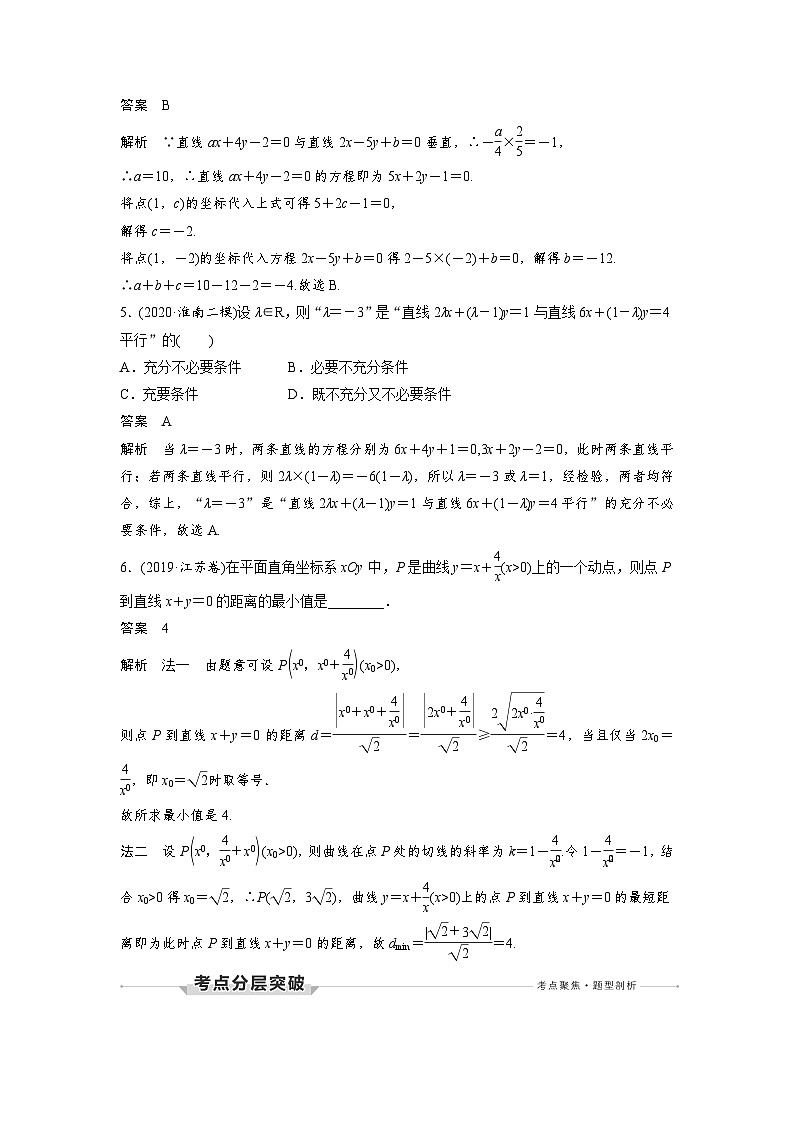 答案　B
解析　∵直线 ax＋4y－2＝0 与直线 2x－5y＋b＝0 垂直，∴－\frac{a}{4}×\frac{2}{5}＝－1，
∴a＝10，∴直线 ax＋4y－2＝0 的方程即为 5x＋2y－1＝0.
将点(1，c)的坐标代入上式可得 5＋2c－1＝0，
解得 c＝－2.
将点(1，－2)的坐标代入方程 2x－5y＋b＝0 得 2－5×(－2)＋b＝0，解得 b＝－12.
∴a＋b＋c＝10－12－2＝－4.故选 B.
5．(2020·淮南二模)设 λ∈R，则“λ＝－3”是“直线 2λx＋(λ－1)y＝1 与直线 6x＋(1－λ)y＝4
平行”的(　　)
A．充分不必要条件　　B．必要不充分条件
C．充要条件　　D．既不充分又不必要条件
答案　A
解析　当 λ＝－3 时，两条直线的方程分别为 6x＋4y＋1＝0,3x＋2y－2＝0，此时两条直线平
行；若两条直线平行，则 2λ×(1－λ)＝－6(1－λ)，所以 λ＝－3 或 λ＝1，经检验，两者均符
合，综上，“λ＝－3”是“直线 2λx＋(λ－1)y＝1 与直线 6x＋(1－λ)y＝4 平行”的充分不必
要条件，故选 A.
6．(2019·江苏卷)在平面直角坐标系 xOy 中，P 是曲线 y＝x＋\frac{4}{x}(x>0)上的一个动点，则点 P
到直线 x＋y＝0 的距离的最小值是________．
答案　4
解析　法一　由题意可设 P(x0，x0＋\frac{4}{x0})(x₀>0)，
则点 P 到直线 x＋y＝0 的距离 d＝\frac{|x0＋x0＋\frac{4}{x0}|}{\sqrt{2}}＝\frac{|2x0＋\frac{4}{x0}|}{\sqrt{2}}≥\frac{2\sqrt{2x0·\frac{4}{x0}}}{\sqrt{2}}＝4，当且仅当 2x₀＝
\frac{4}{x0}，即 x₀＝\sqrt{2}时取等号．
故所求最小值是 4.
法二　设 P(x0，\frac{4}{x0}＋x0)(x₀>0)，则曲线在点 P 处的切线的斜率为 k＝1－\frac{4}{x_0^2}.令 1－\frac{4}{x_0^2}＝－1，结
合 x₀>0 得 x₀＝\sqrt{2}，∴P(\sqrt{2}，3\sqrt{2})，曲线 y＝x＋\frac{4}{x}(x>0)上的点 P 到直线 x＋y＝0 的最短距
离即为此时点 P 到直线 x＋y＝0 的距离，故 d_{min}＝\frac{|\sqrt{2}＋3\sqrt{2}|}{\sqrt{2}}＝4.
考点分层突破　　考点聚焦·题型剖析